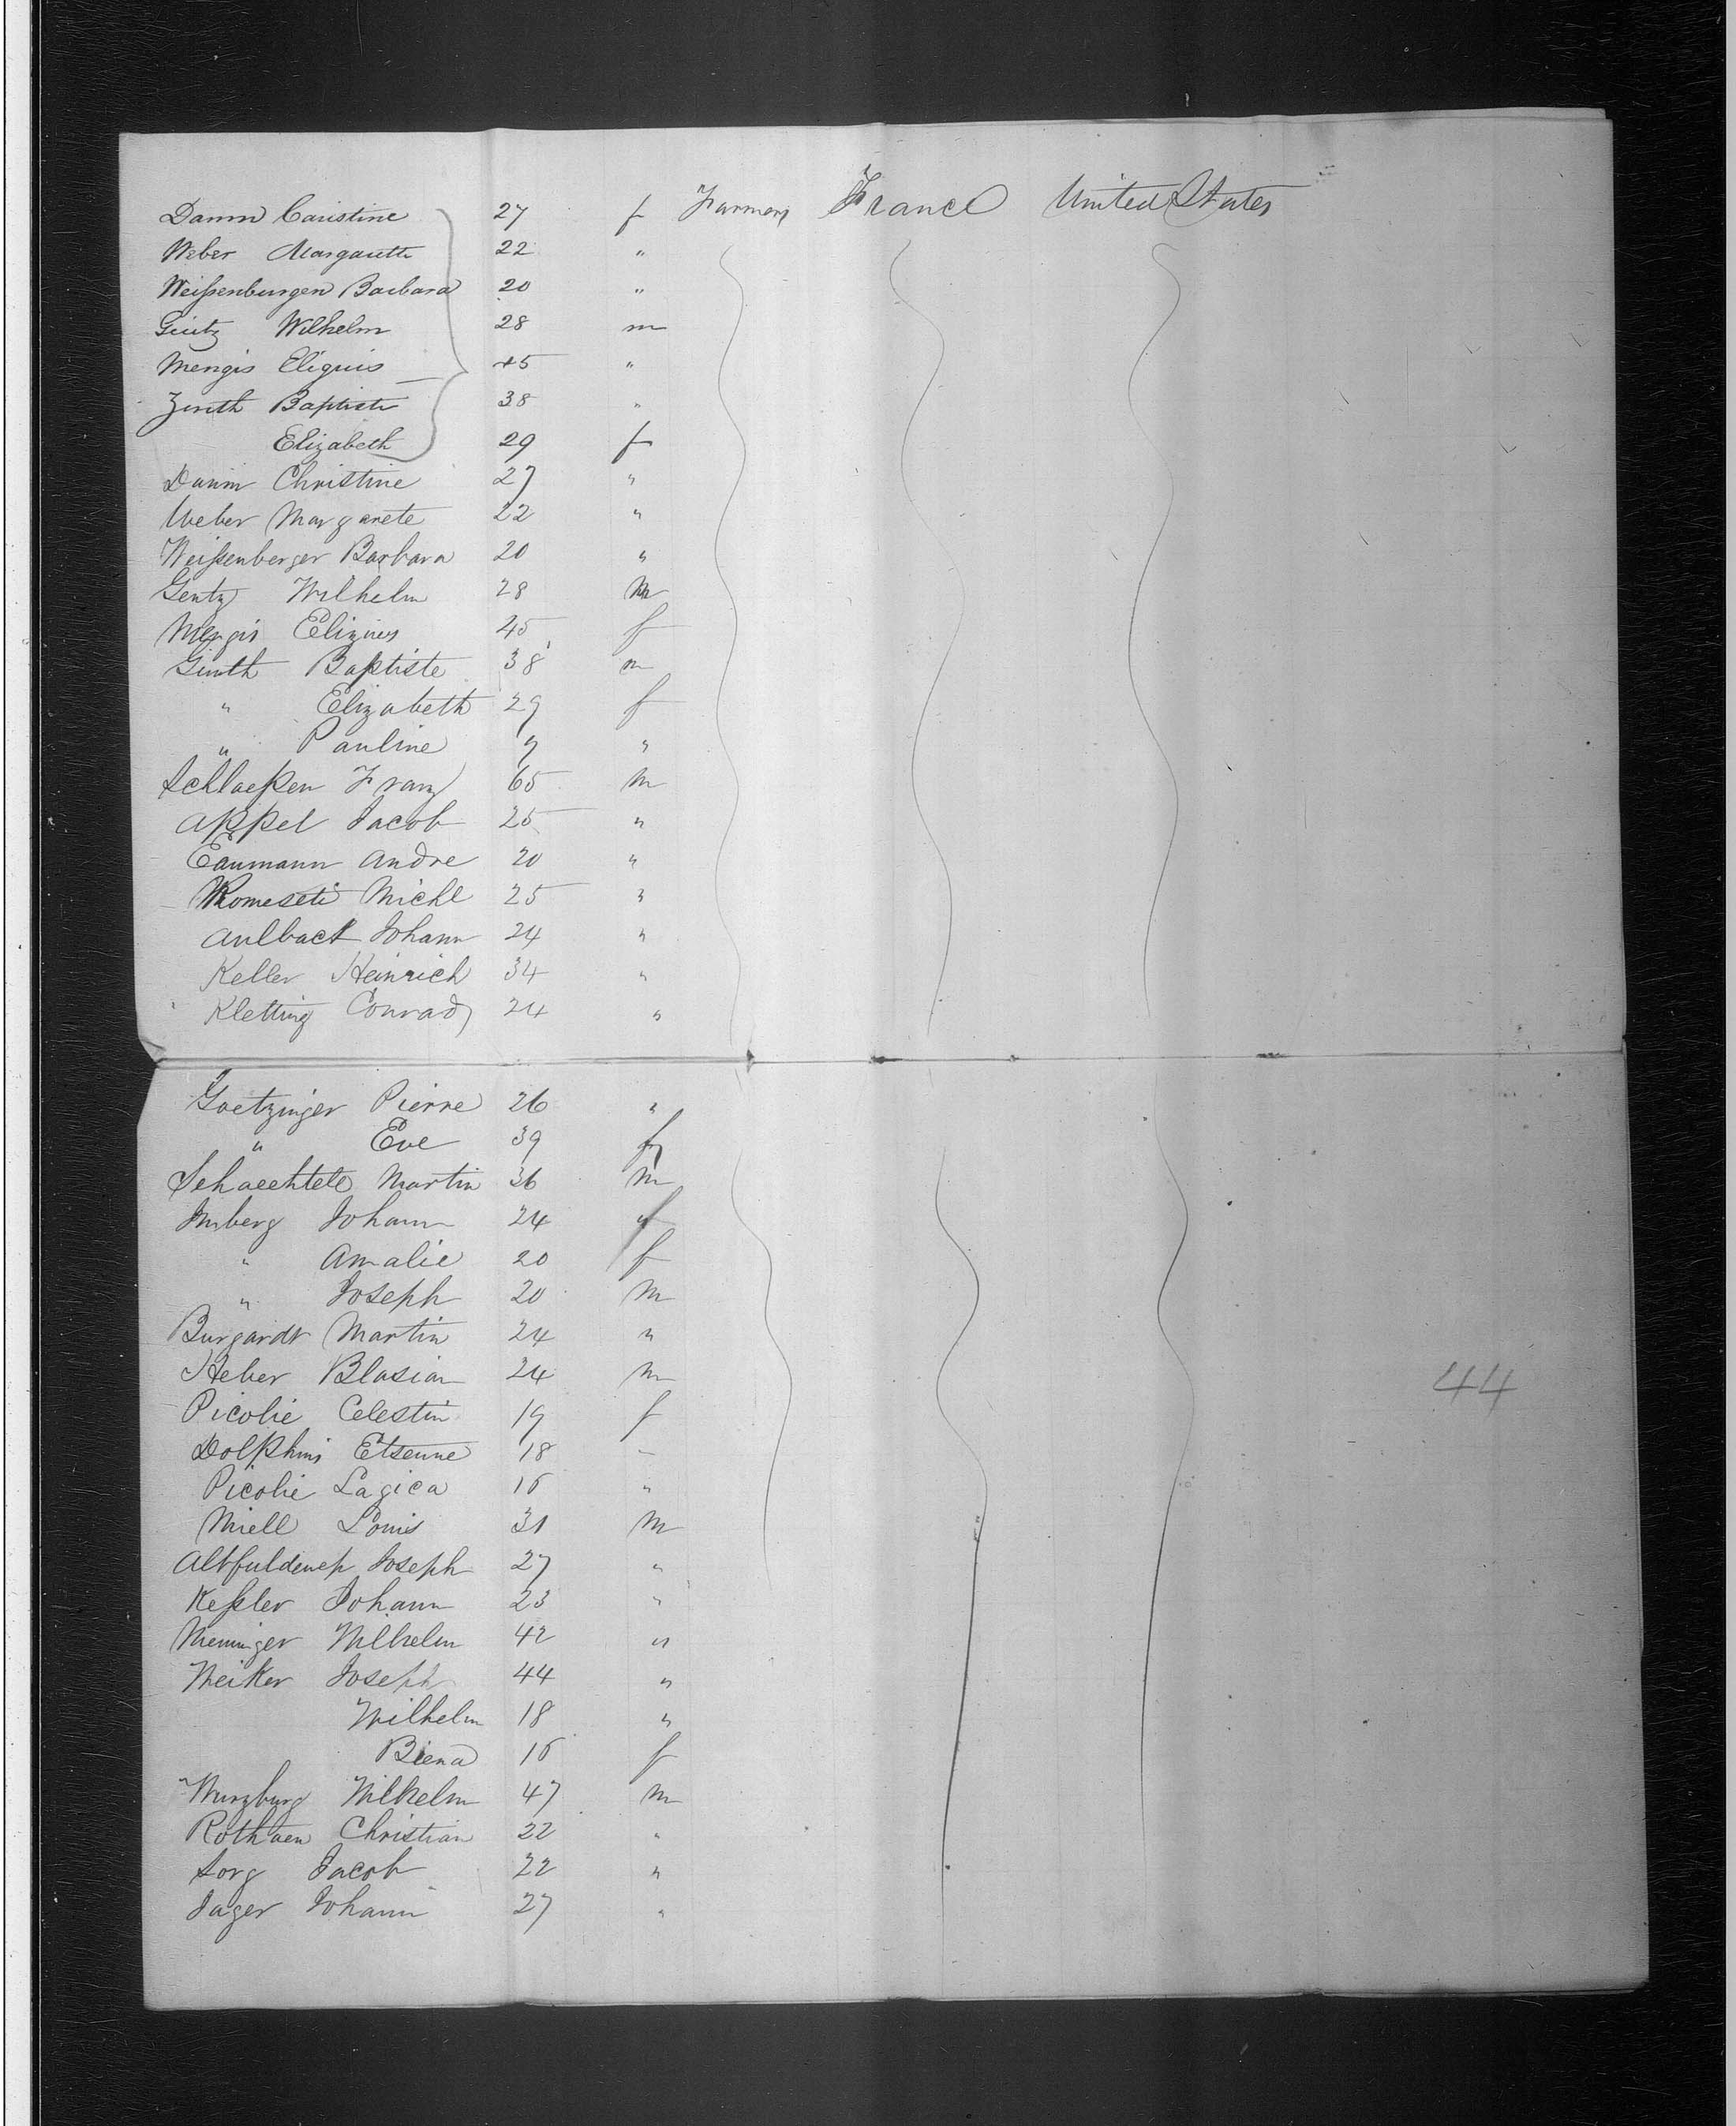 Damm Caristine 27 f Farmers France United States
Weber Margarette 22 "
Weißenburgen Barbara 20 "
Geutz Wilhelm 28 m
Mengis Eliguis 45 "
Zinth Baptiste 38 "
Elizabeth 29 f
Damm Christine 27 "
Weber Margarete 22 "
Weißenberger Barbara 20 "
Gentz Wilhelm 28 m
Mengis Eligius 45 f
Ginth Baptiste 38 m
" Elizabeth 29 f
" Pauline 9 "
Schlaeßen Franz 65 m
Appel Jacob 25 "
Eaumann Andre 20 "
Michl 25 "
Aulbach Johann 24 "
Keller Heinrich 34 "
Kletting Conrad 24 "
Goetzinger Pierre 26 "
" Eve 39 f
Schaechtele Martin 36 m
Imberg Johann 24 "
" Amalie 20 f
" Joseph 20 m
Burgardt Martin 24 "
Heber Blasian 24 m
Picolie Celestin 19 f
Dolphins Etsenne 18 "
Picolie Lagica 16 "
Miell Louis 31 m
Joseph 27 "
Keßler Johann 23 "
Wilhelm 42 "
Meiker Joseph 44 "
Wilhelm 18 "
Biena 16 f
Wurzburg Wilhelm 47 m
Rothaen Christian 22 "
Sorg Jacob 22 "
Jager Johann 27 "
44